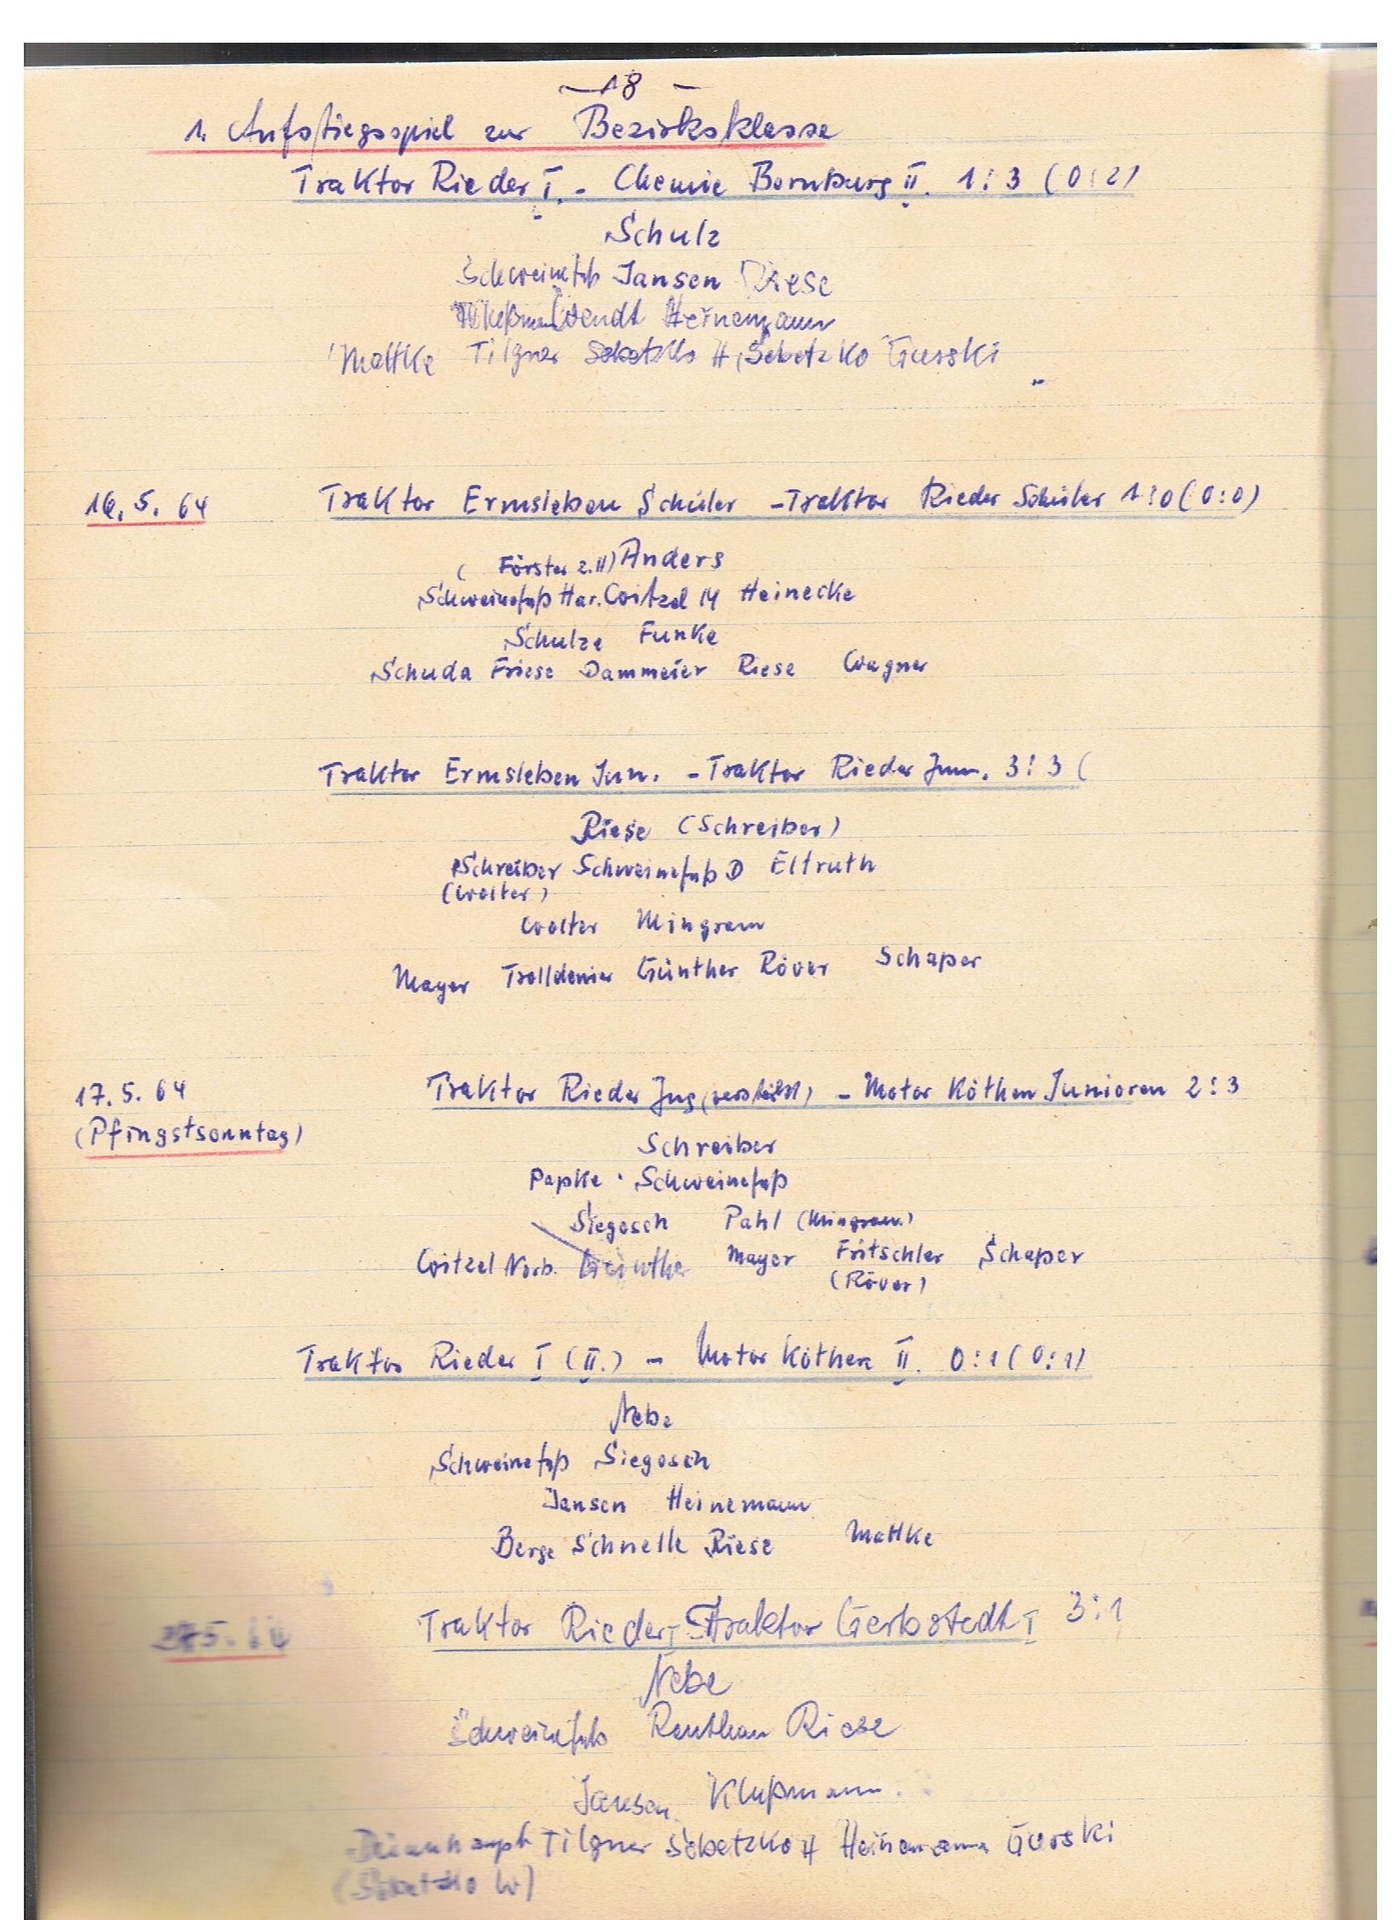 – 18 –
1. Aufstiegsspiel zur Bezirksklasse
Traktor Rieder I. - Chemie Bernburg II. 1:3 (0:2)
Schulz
Schweinefuß Jansen Riese
Wendt Heinemann
Mattke Tilgner Sobetzko H. Sobetzko Gurski
16.5.64 Traktor Ermsleben Schüler - Traktor Rieder Schüler 1:0 (0:0)
(Förster 2.H) Anders
Schweinefuß Har. Coitzel M Heinecke
Schulze Funke
Schuda Friese Dammeier Riese Wagner
Traktor Ermsleben Jun. - Traktor Rieder Jun. 3:3 (
Riese (Schreiber)
Schreiber Schweinefuß D Eltruth
(Wolter)
Wolter Mingram
Mayer Trolldenier Günther Röver Schaper
17.5.64 Traktor Rieder Jug (verstärkt) - Motor Köthen Junioren 2:3
(Pfingstsonntag)
Schreiber
Papke Schweinefuß
Siegosch Pahl (Mingram)
Coitzel Norb. Günther Mayer Fritschler Schaper
(Röver)
Traktor Rieder I (II.) - Motor Köthen II. 0:1 (0:1)
Nebe
Schweinefuß Siegosch
Jansen Heinemann
Berge Schnelle Riese Mattke
5.64 Traktor Rieder I - Traktor Gerbstedt I 3:1
Nebe
Schweinefuß Riese
Jansen Klußmann
Tilgner Sobetzko H Heinemann Gurski
(Sobetzko W)